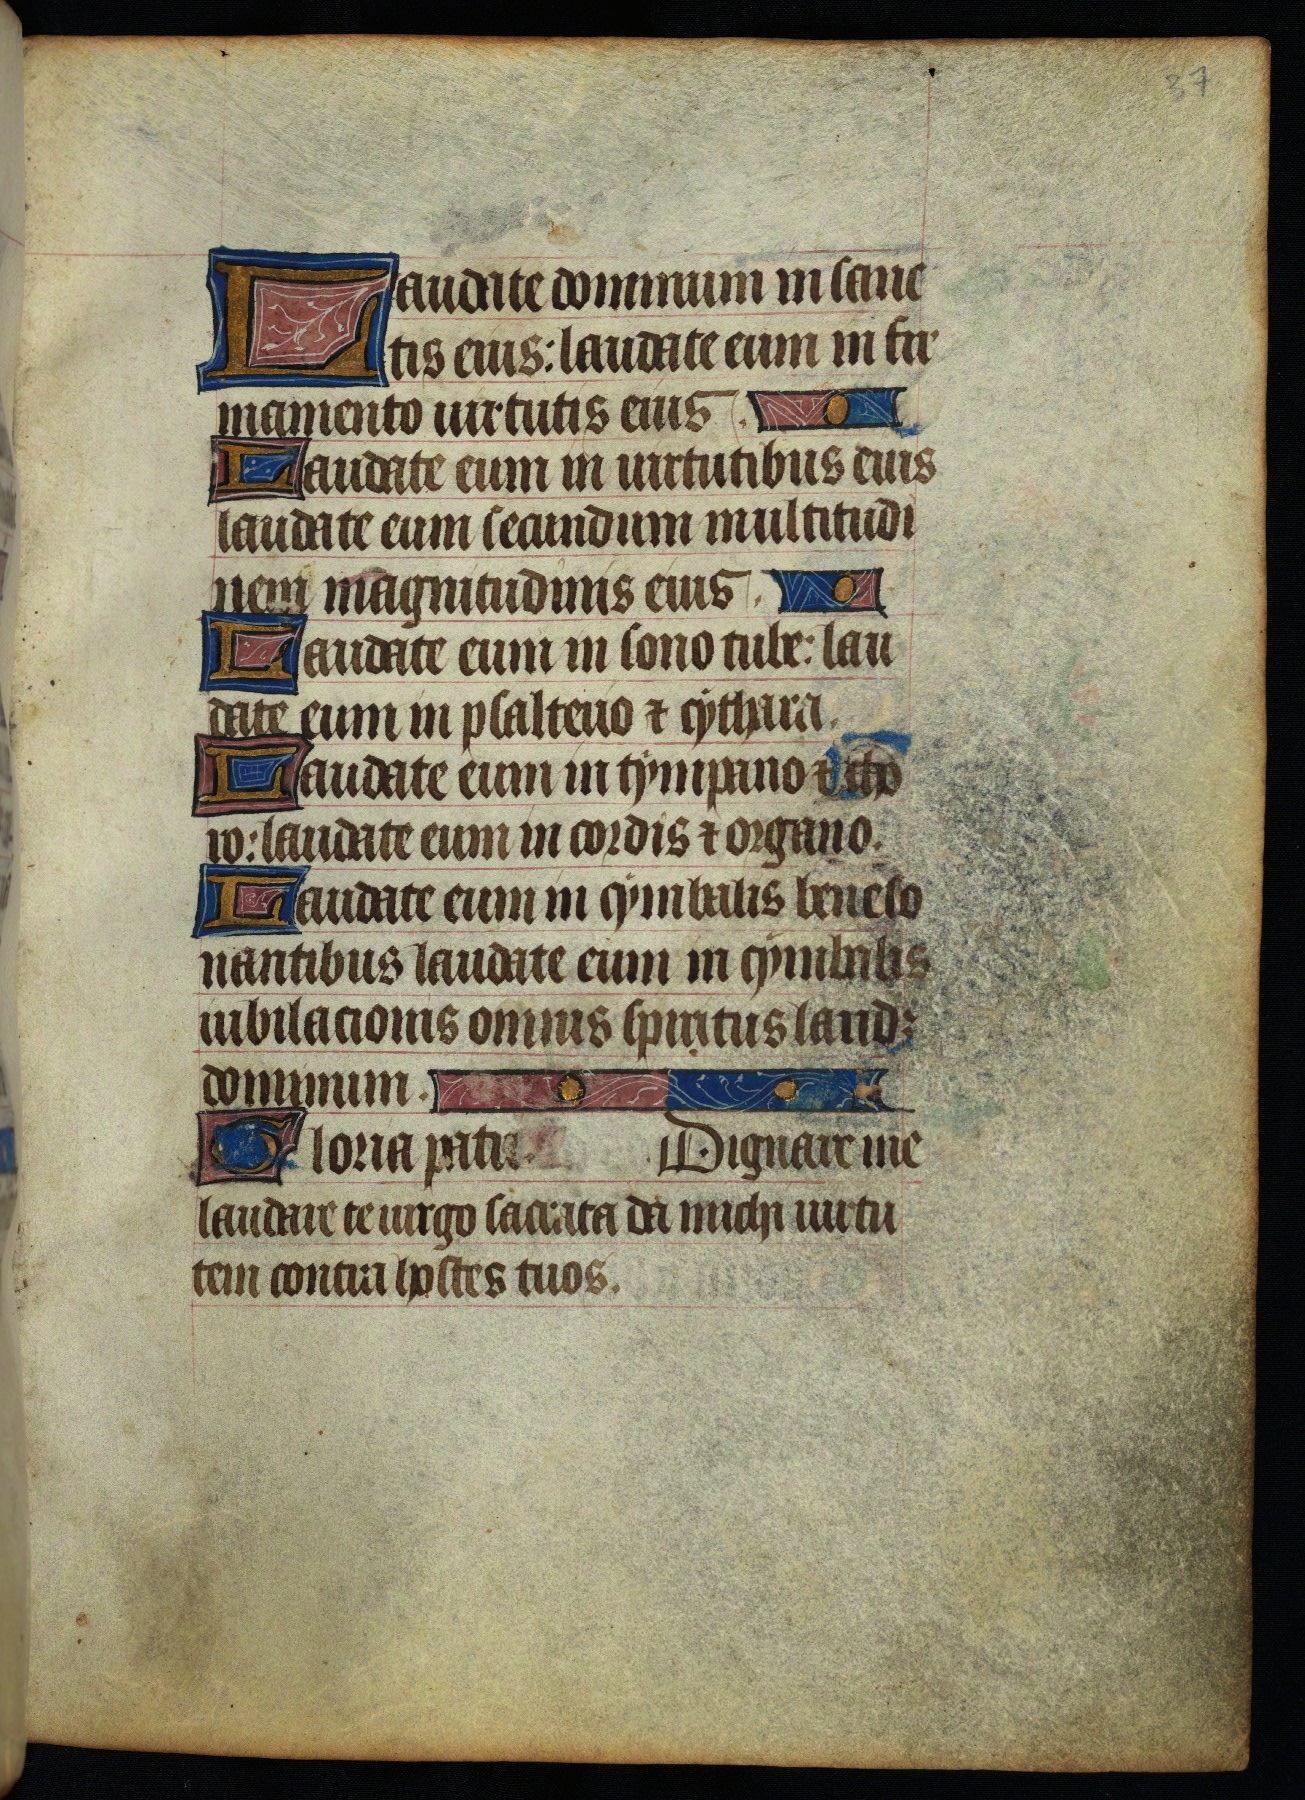 37
Laudate dominum in sanc
tis eius: laudate eum in fir
mamento uirtutis eius .
Laudate eum in uirtutibus eius
laudate eum secundum multitudi
nem magnitudinis eius .
Laudate eum in sono tube: lau
date eum in psalterio ⁊ cythara.
Laudate eum in tympano ⁊ cho
ro: laudate eum in cordis ⁊ organo.
Laudate eum in cymbalis beneso
nantibus laudate eum in cymbalis
iubilacionis omnis spiritus laudꝫ
dominum .
Gloria patri. Dignare me
laudare te uirgo sacrata da michi uirtu
tem contra hostes tuos.